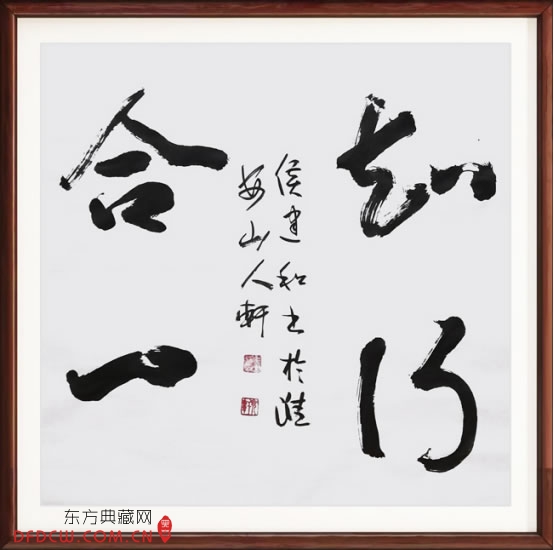 知行
侯建和书於
山人軒
合一
东方典藏网
DFDCW.COM.CN